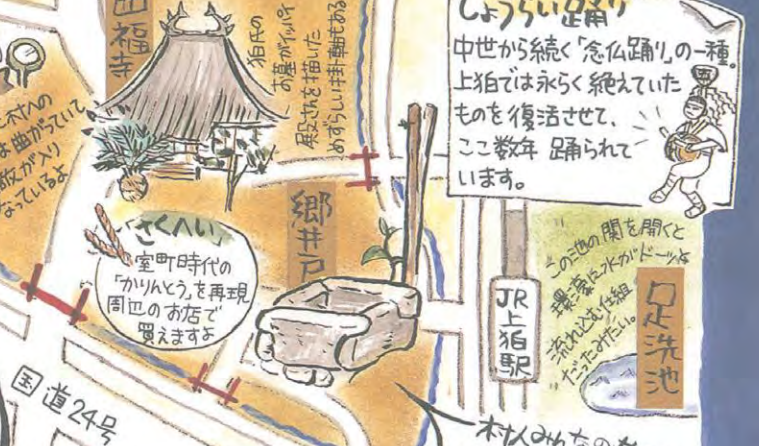 しょうらい踊り
中世から続く「念仏踊り」の一種。
上狛では永らく絶えていた
ものを復活させて、
ここ数年 踊られて
います。
西福寺
狛氏の
お墓がイッパイ
殿さんを描いた
めずらしい掛軸もある
村への
は曲がっていて
敵が入り
なっているよ
「さくへい」
室町時代の
「かりんとう」を再現
周辺のお店で
買えますよ
郷井戸
JR上狛駅
この池の関を開くと
環濠に水がドーッと
流れ込む仕組
だったみたい。
足洗池
国道24号
村人みんなの